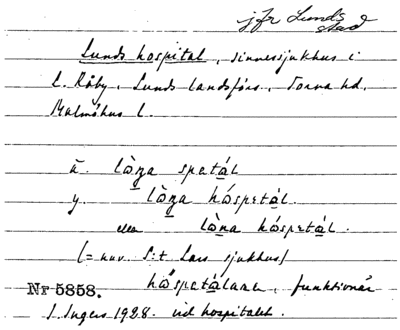 jfr Lunds
stad
Lunds hospital, sinnessjukhus i
L. Råby, Lunds landsförs., Torna hd.
Malmöhus l.
ä. lòŋa spetál
y. lòŋa hóspetál.
eller lòna hóspetál.
(= nuv. S:t Lars sjukhus)
Nr 5858. hóspetálare, funktionär
I. Ingers 1928. vid hospitalet.